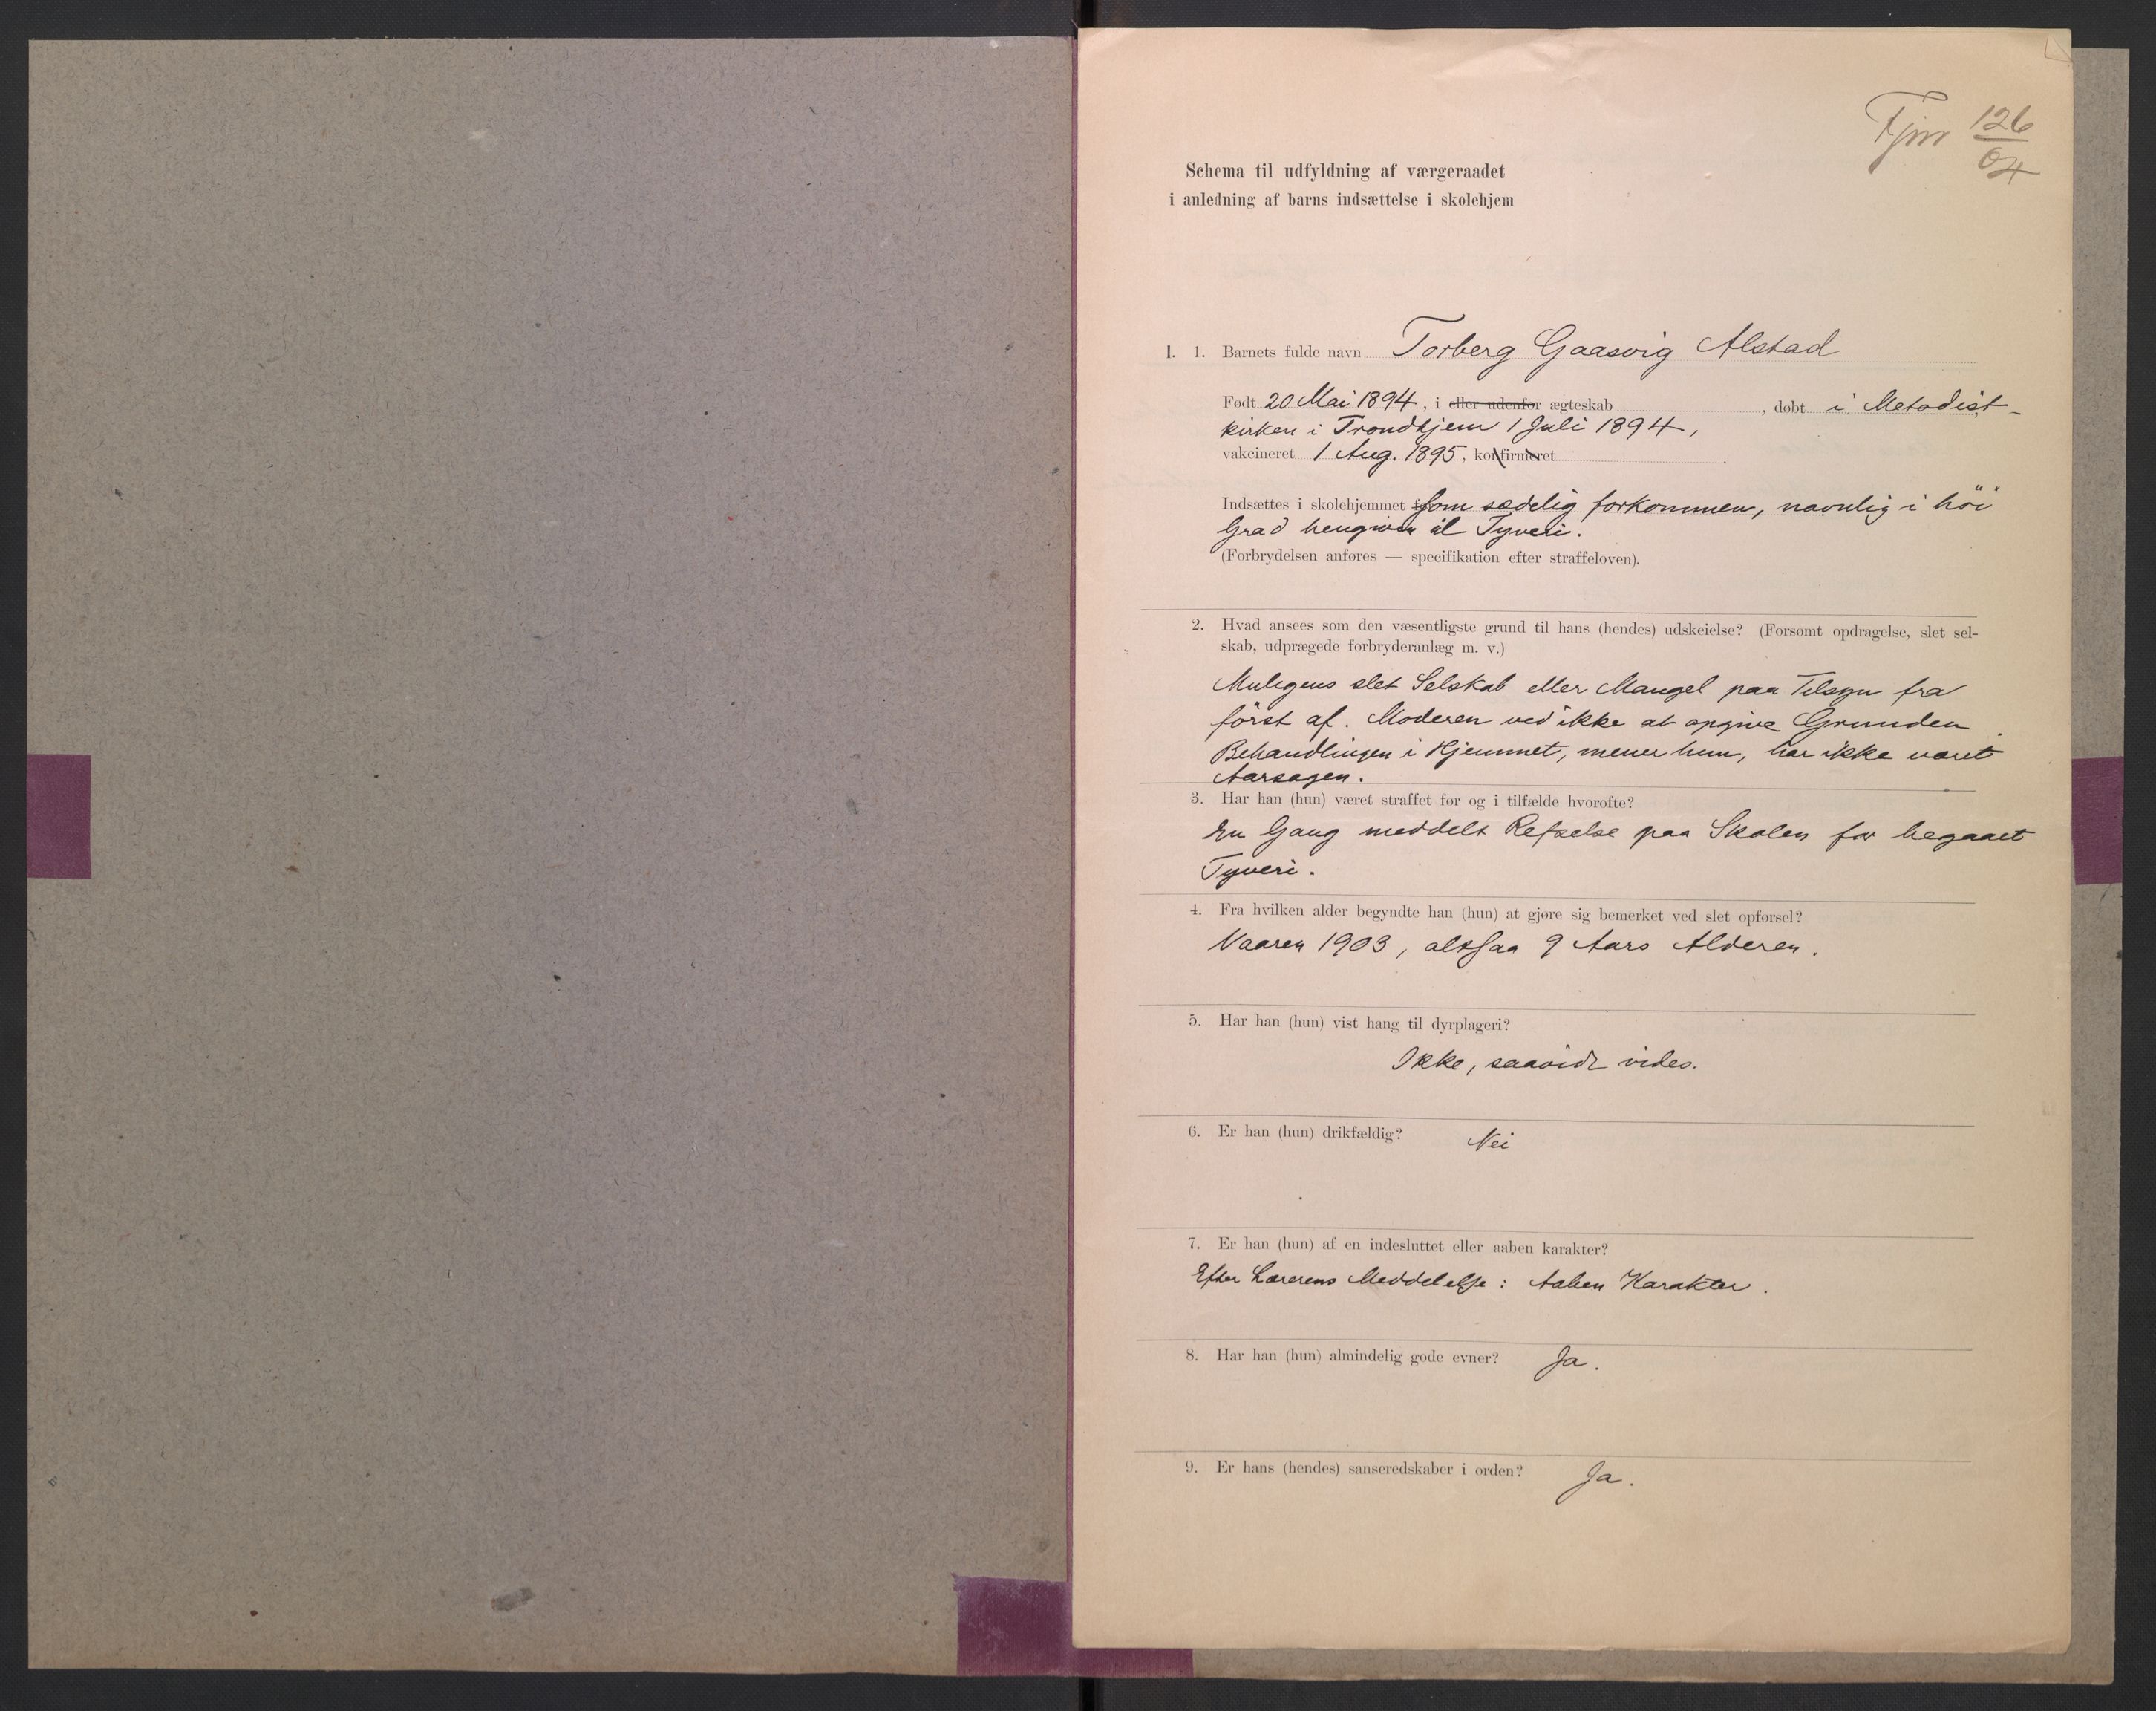 Tjm 126
04
Schema til udfyldning af værgeraadet
i anledning af barns indsættelse i skolehjem
I. 1. Barnets fulde navn Torberg Gaasvig Alstad
Født 20 Mai 1894, i eller udenfor ægteskab , døbt i Metodist-
kirken i Trondhjem 1 Juli 1894,
vakcineret 1 Aug. 1895, konfirmeret
Indsættes i skolehjemmet som sædelig forkommen, navnlig i höi
Grad hengiven til Tyveri.
(Forbrydelsen anføres — specifikation efter straffeloven).
2. Hvad ansees som den væsentligste grund til hans (hendes) udskeielse? (Forsømt opdragelse, slet sel-
skab, udprægede forbryderanlæg m. v.)
Muligens slet Selskab eller Mangel paa Tilsyn fra
först af. Moderen ved ikke at opgive Grunden.
Behandlingen i Hjemmet, mener hun, har ikke været
Aarsagen.
3. Har han (hun) været straffet før og i tilfælde hvorofte?
En Gang meddelt Refselse paa Skolen for begaaet
Tyveri.
4. Fra hvilken alder begyndte han (hun) at gjøre sig bemerket ved slet opførsel?
Vaaren 1903, altsaa 9 Aars Alderen.
5. Har han (hun) vist hang til dyrplageri?
Ikke, saavidt vides.
6. Er han (hun) drikfældig? Nei
7. Er han (hun) af en indesluttet eller aaben karakter?
Efter Lærerens Meddelelse: Aaben Karakter.
8. Har han (hun) almindelig gode evner? Ja.
9. Er hans (hendes) sanseredskaber i orden? Ja.